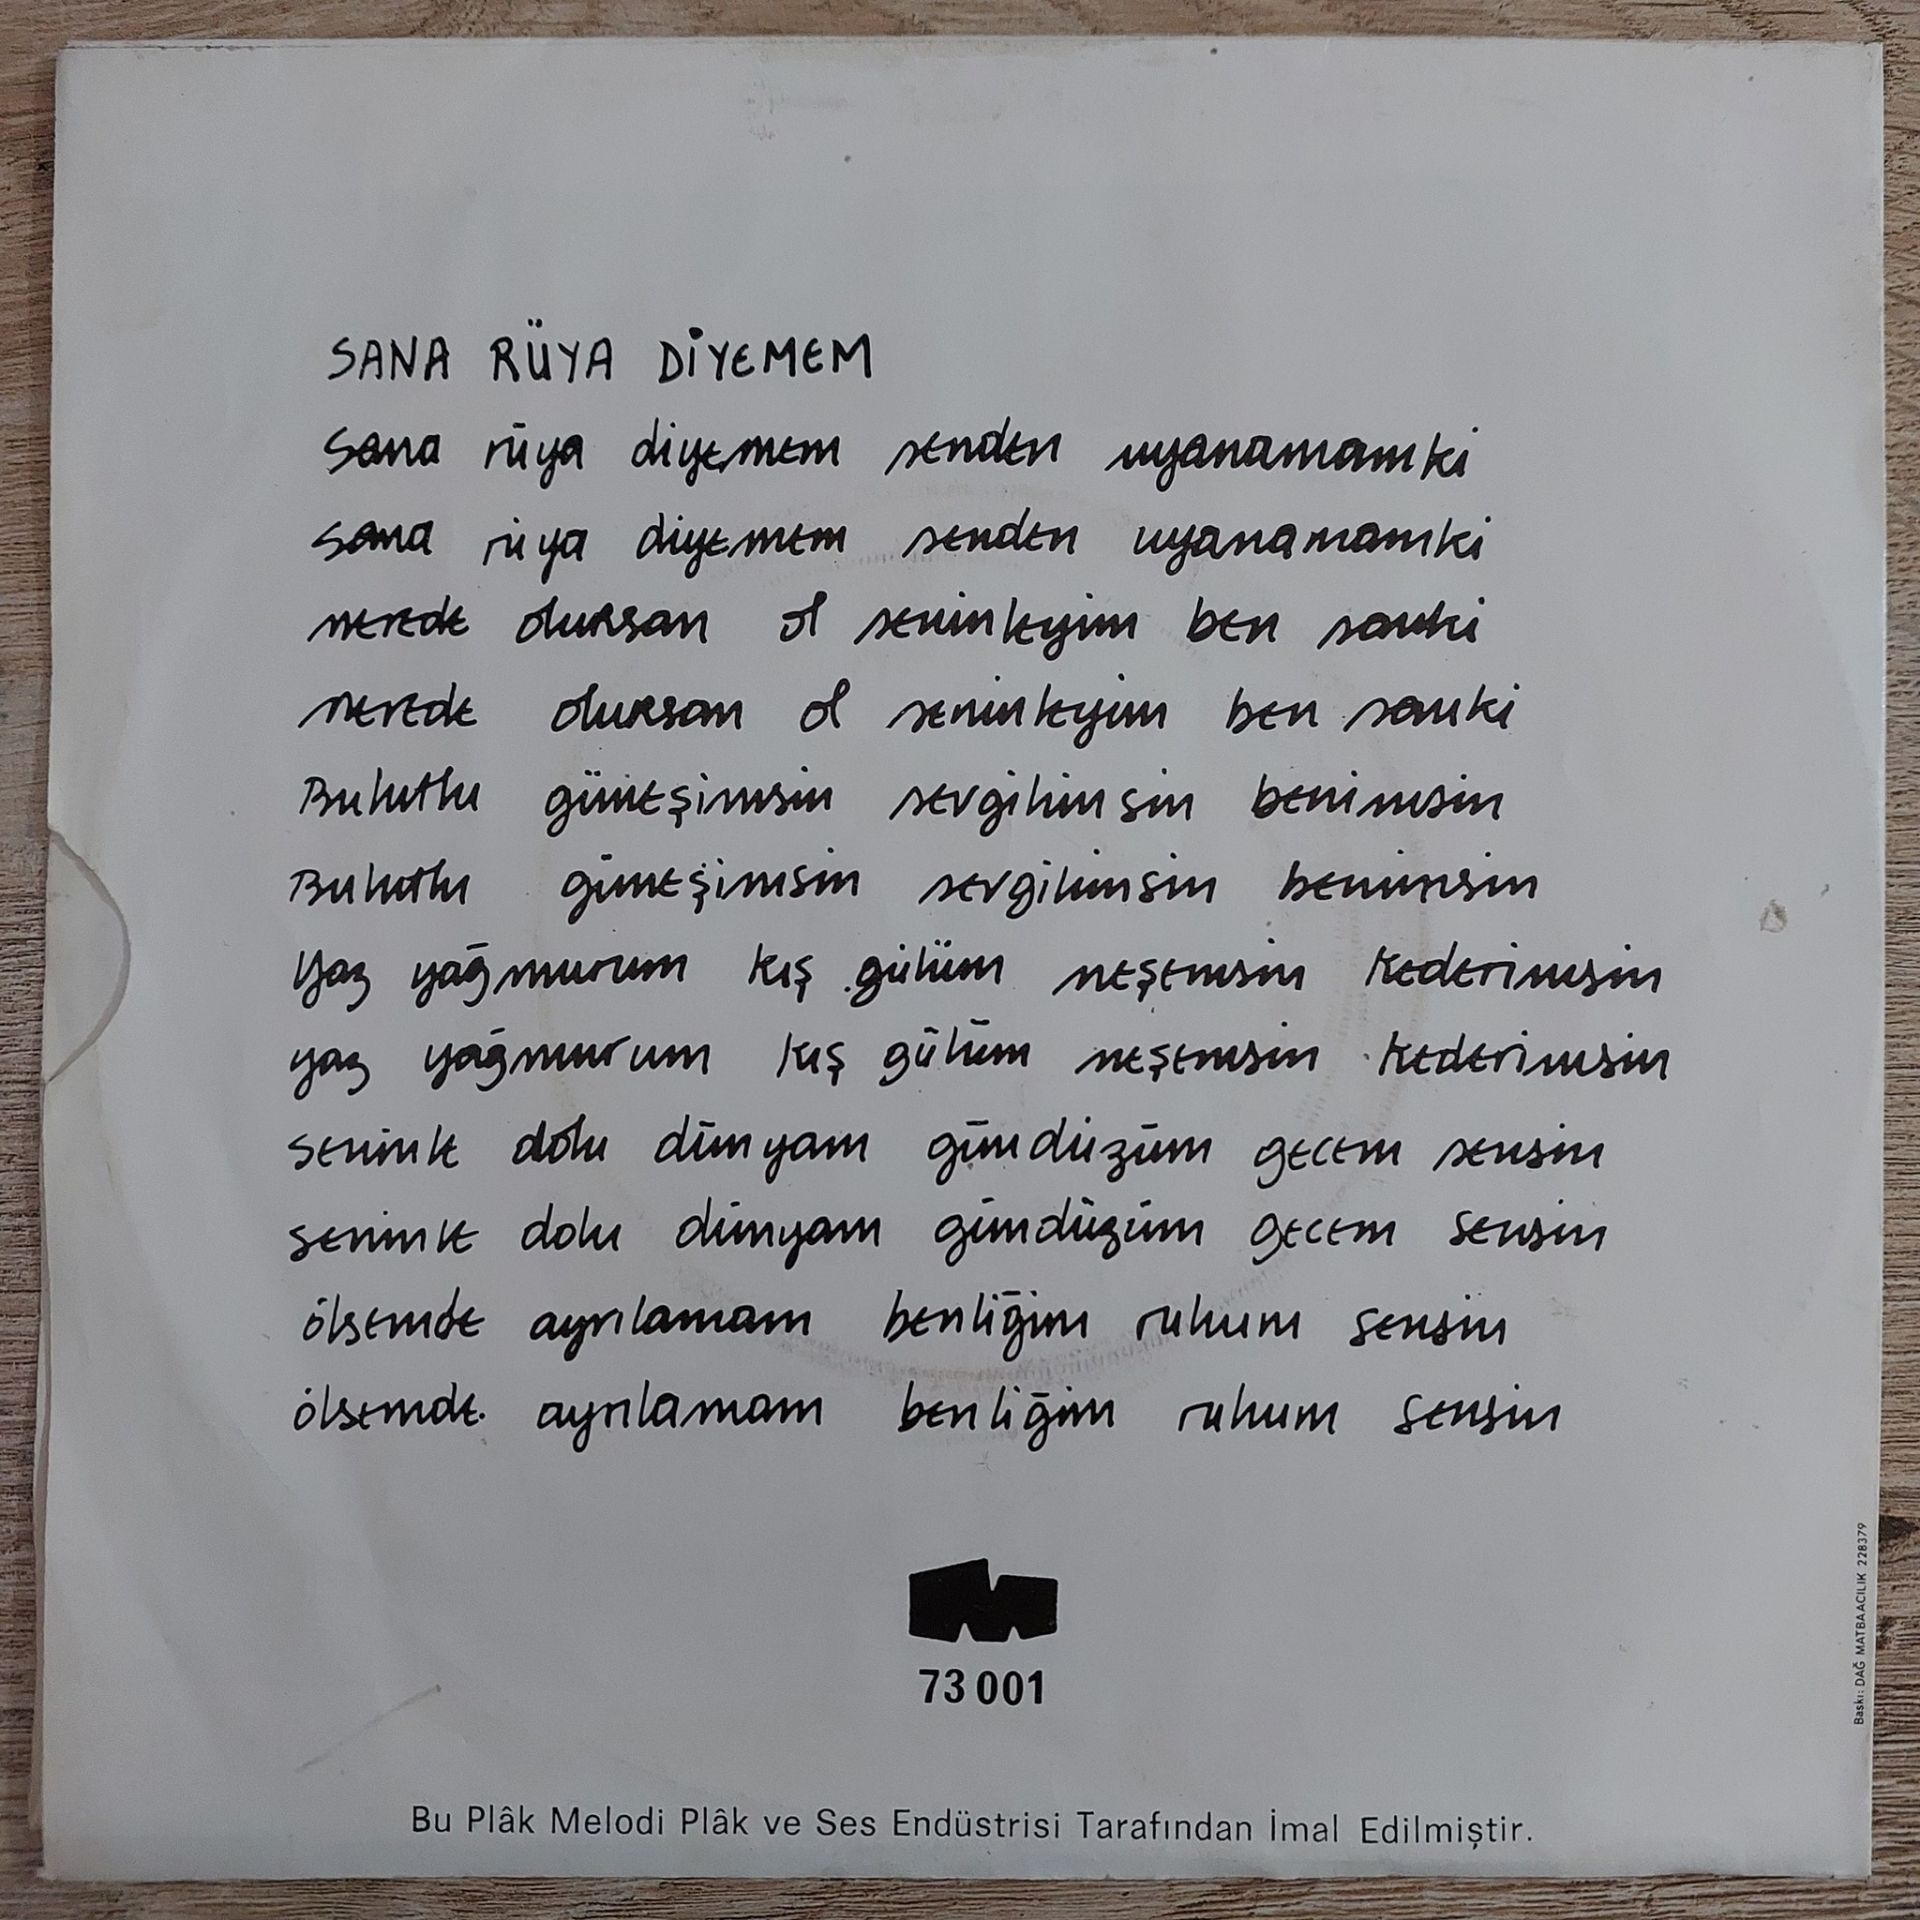 SANA RÜYA DİYEMEM
Sana rüya diyemem senden uyanamamki
sana rüya diyemem senden uyanamamki
nerede olursan ol seninleyim ben sanki
nerede olursan ol seninleyim ben sanki
Bulutlu güneşimsin sevgilimsin benimsin
Bulutlu güneşimsin sevgilimsin benimsin
Yaz yağmurum kış gülüm neşemsin kederimsin
yaz yağmurum kış gülüm neşemsin kederimsin
seninle dolu dünyam gündüzüm gecem sensin
seninle dolu dünyam gündüzüm gecem sensin
ölsemde ayrılamam benliğim ruhum sensin
ölsemde ayrılamam benliğim ruhum sensin
73 001
Bu Plâk Melodi Plâk ve Ses Endüstrisi Tarafından İmal Edilmiştir.
Baskı: DAĞ MATBAACILIK 228379